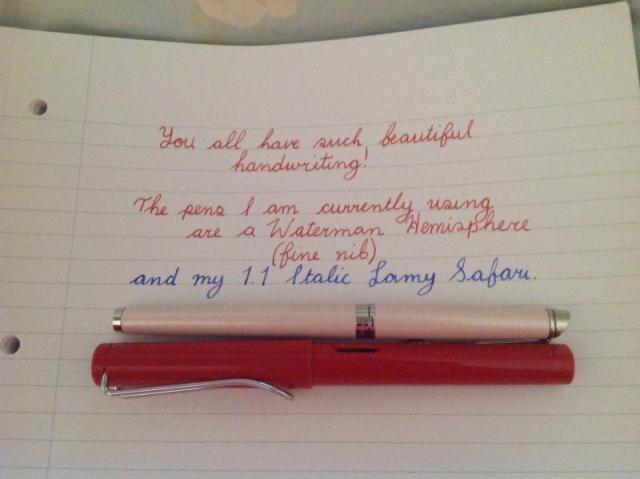 You all have such beautiful
handwriting!
The pens I am currently using
are a Waterman Hemisphere
(fine nib)
and my 1.1 Italic Lamy Safari.